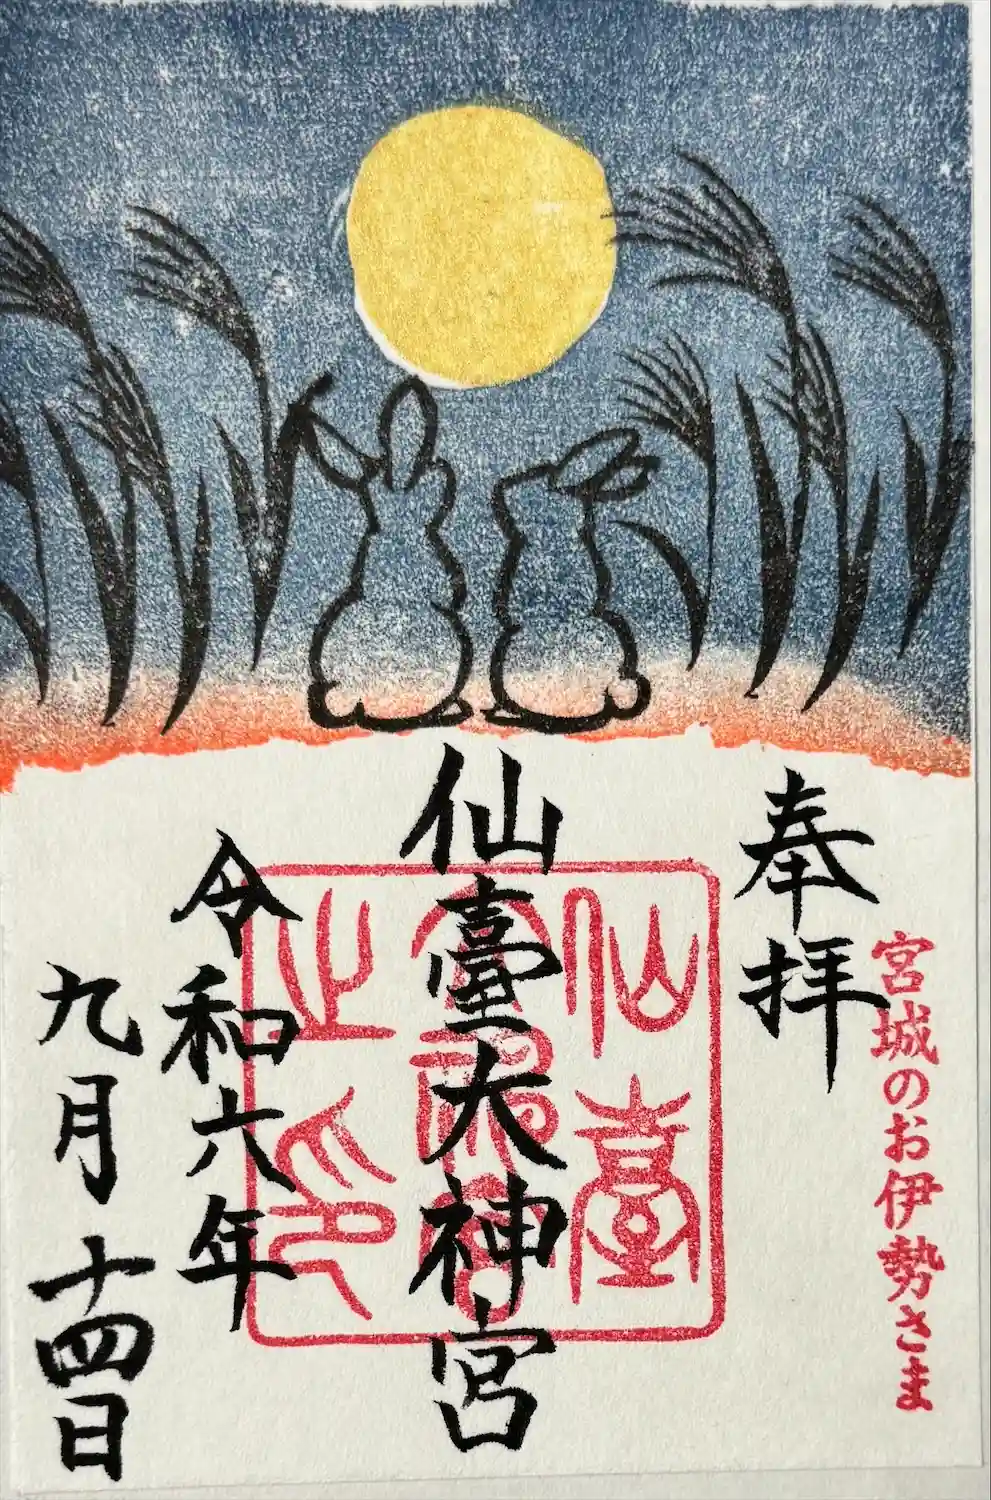 宮城のお伊勢さま
奉拝
仙臺大神宮
仙臺
大神宮
之印
令和六年
九月十四日